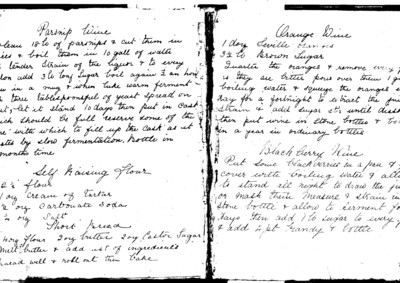 Parsnip Wine
18 lb of parsnips & cut them in
& boil them in 10 galls of water
tender strain off the liquor & to every
add 3 lb Long Sugar boil again ¾ an hour
in a mug & when luke warm ferment
three tablespoonful of yeast spread on
let it stand 10 days then put in cask
which should be full reserve some of the
with which to fill up the cask as it
by slow fermentation. Bottle in
months time
Self Raising Flour
flour
oz Cream of Tartar
oz Carbonate Soda
oz Salt
Short Bread
4 oz flour 2 oz butter 2 oz Castor Sugar
Melt butter & add rest of ingredients
Knead well & roll out then bake
Orange Wine
1 doz Seville
3½ lb Brown Sugar
Quarter the oranges & remove every
is they are bitter pour over them 1 gall
boiling water & squeeze the oranges every
day for a fortnight to extract the juice
strain & add sugar stir until dissolved
then put wine in stone bottles & bottle
in a year in ordinary bottles
Blackberry Wine
Put some blackberries in a pan &
cover with boiling water & allow
to stand all night to draw the juice
or mash them Measure & strain in
stone bottle & allow to ferment for
days then add 1 lb sugar to every
& add ½ pt brandy & bottle